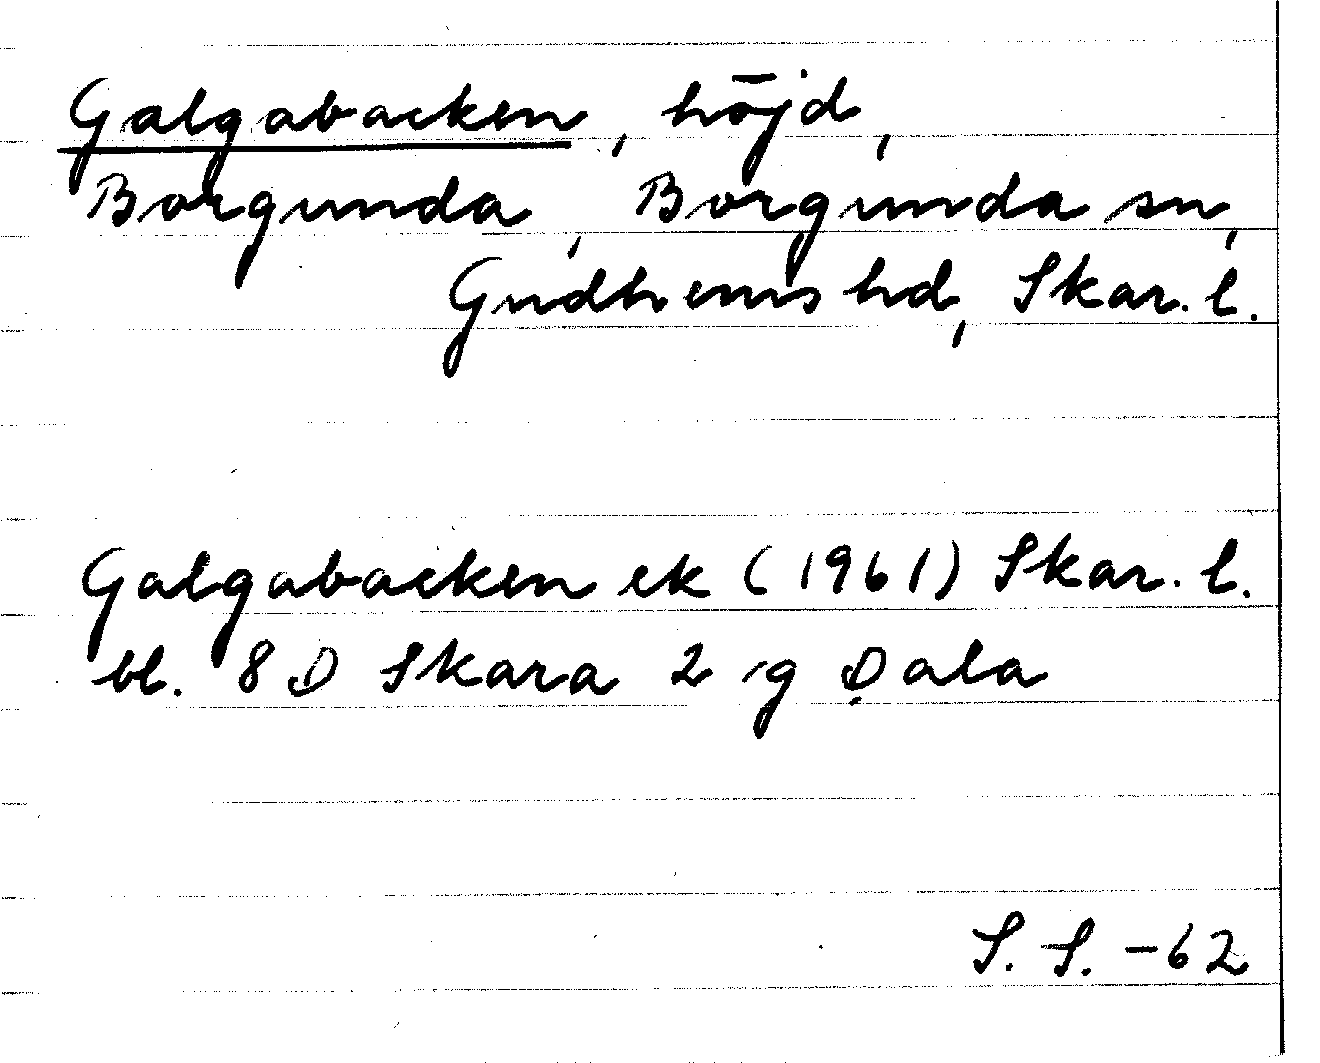 Galgabacken, höjd,
Borgunda, Borgunda sn,
Gudhems hd, Skar. l.
Galgabacken ek (1961) Skar. l.
bl. 8 D Skara 2 g Dala
S. S. -62